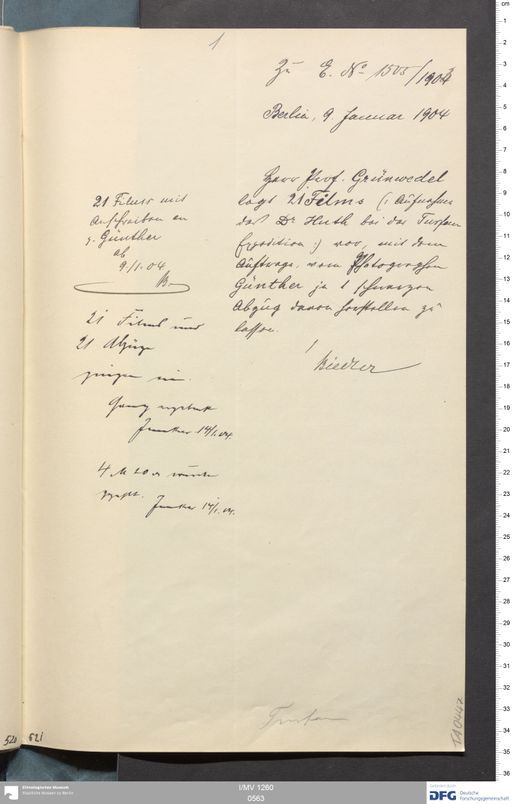 1
Zu E. No 1503/1903
Berlin, 9 Januar 1904
Herr Prof. Grünwedel
legt 21 Films (: Aufnahmen
des Dr Huth bei der Turfan
Expedition :) vor, mit dem
Auftrage, vom Photographen
Günther je 1 schwarzen
Abzug davon herstellen zu
lassen.
21 Films mit
Anschreiben an
Günther
ab
9/1.04
21 Films und
21 Abzüge
gingen ein.
Junker 14/1.04
4 M 20
Junker 14/1.04.
Turfan
520
521
TA 0442
Ethnologisches Museum
Staatliche Museen zu Berlin
I/MV 1260
0563
Gefördert durch
DFG Deutsche
Forschungsgemeinschaft
cm
1
2
3
4
5
6
7
8
9
10
11
12
13
14
15
16
17
18
19
20
21
22
23
24
25
26
27
28
29
30
31
32
33
34
35
36